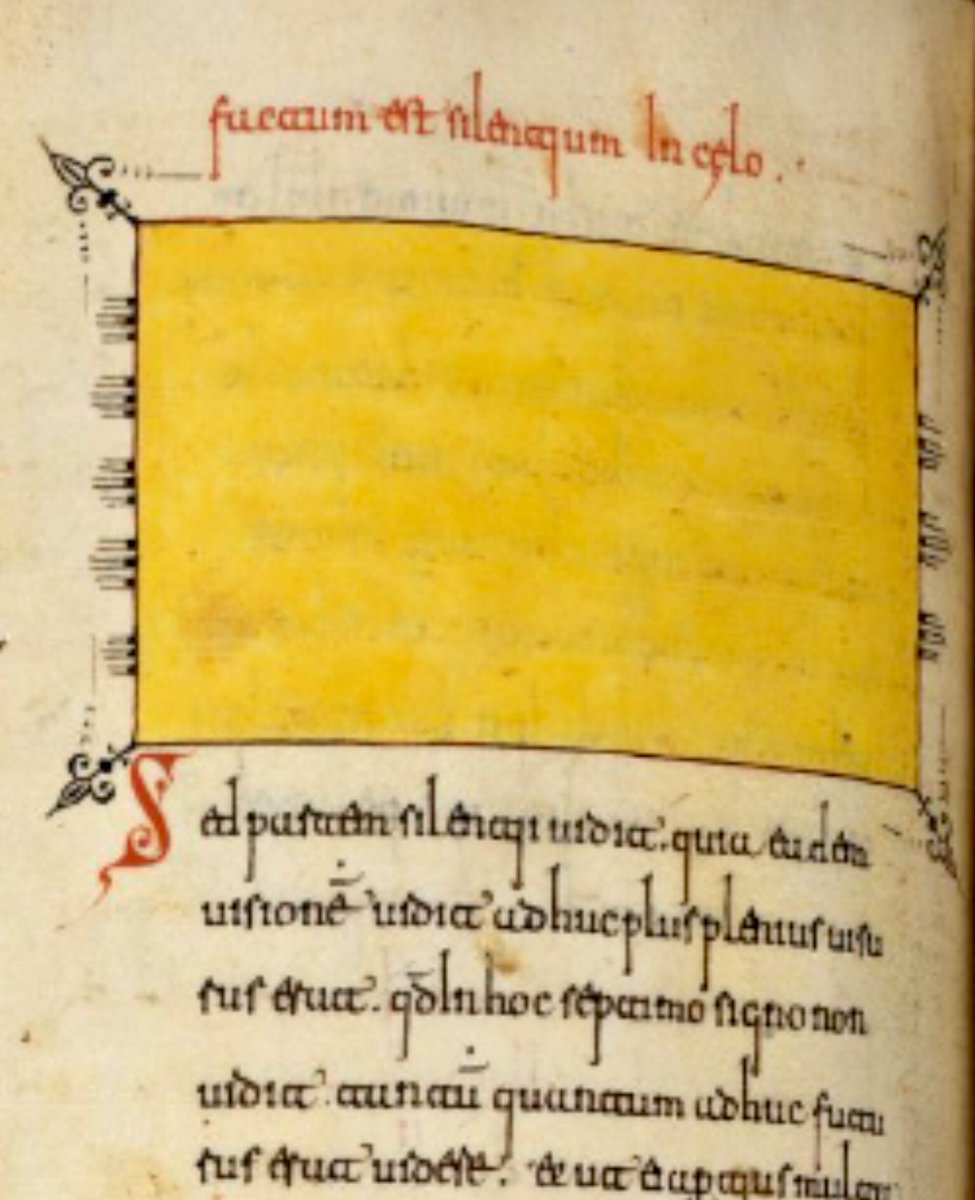 factum est silentium In cęlo.
Sed partem silentii uidit. quia eadem
uisionē uidit adhuc plus plenius uisu
rus erat. qđ In hoc septimo signo non
uidit. tantū quantum adhuc futu
rus erat uidere. et ut